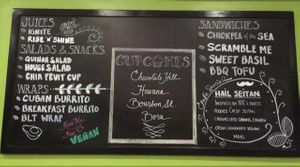 JUICES
IGNITE
RISE N' SHINE
SALADS & SNACKS
QUINOA SALAD
HOUSE SALAD
CHIA FRUIT CUP
WRAPS
CUBAN BURRITO
BREAKFAST BURRITO
BLT WRAP
VEGAN
CUPCAKES
Chocolate Hill
Havana
Bourbon St.
Bora
SANDWICHES
CHICKPEA of the SEA
SCRAMBLE ME
SWEET BASIL
BBQ TOFU
HAIL SEITAN
INSPIRED BY
FOODS